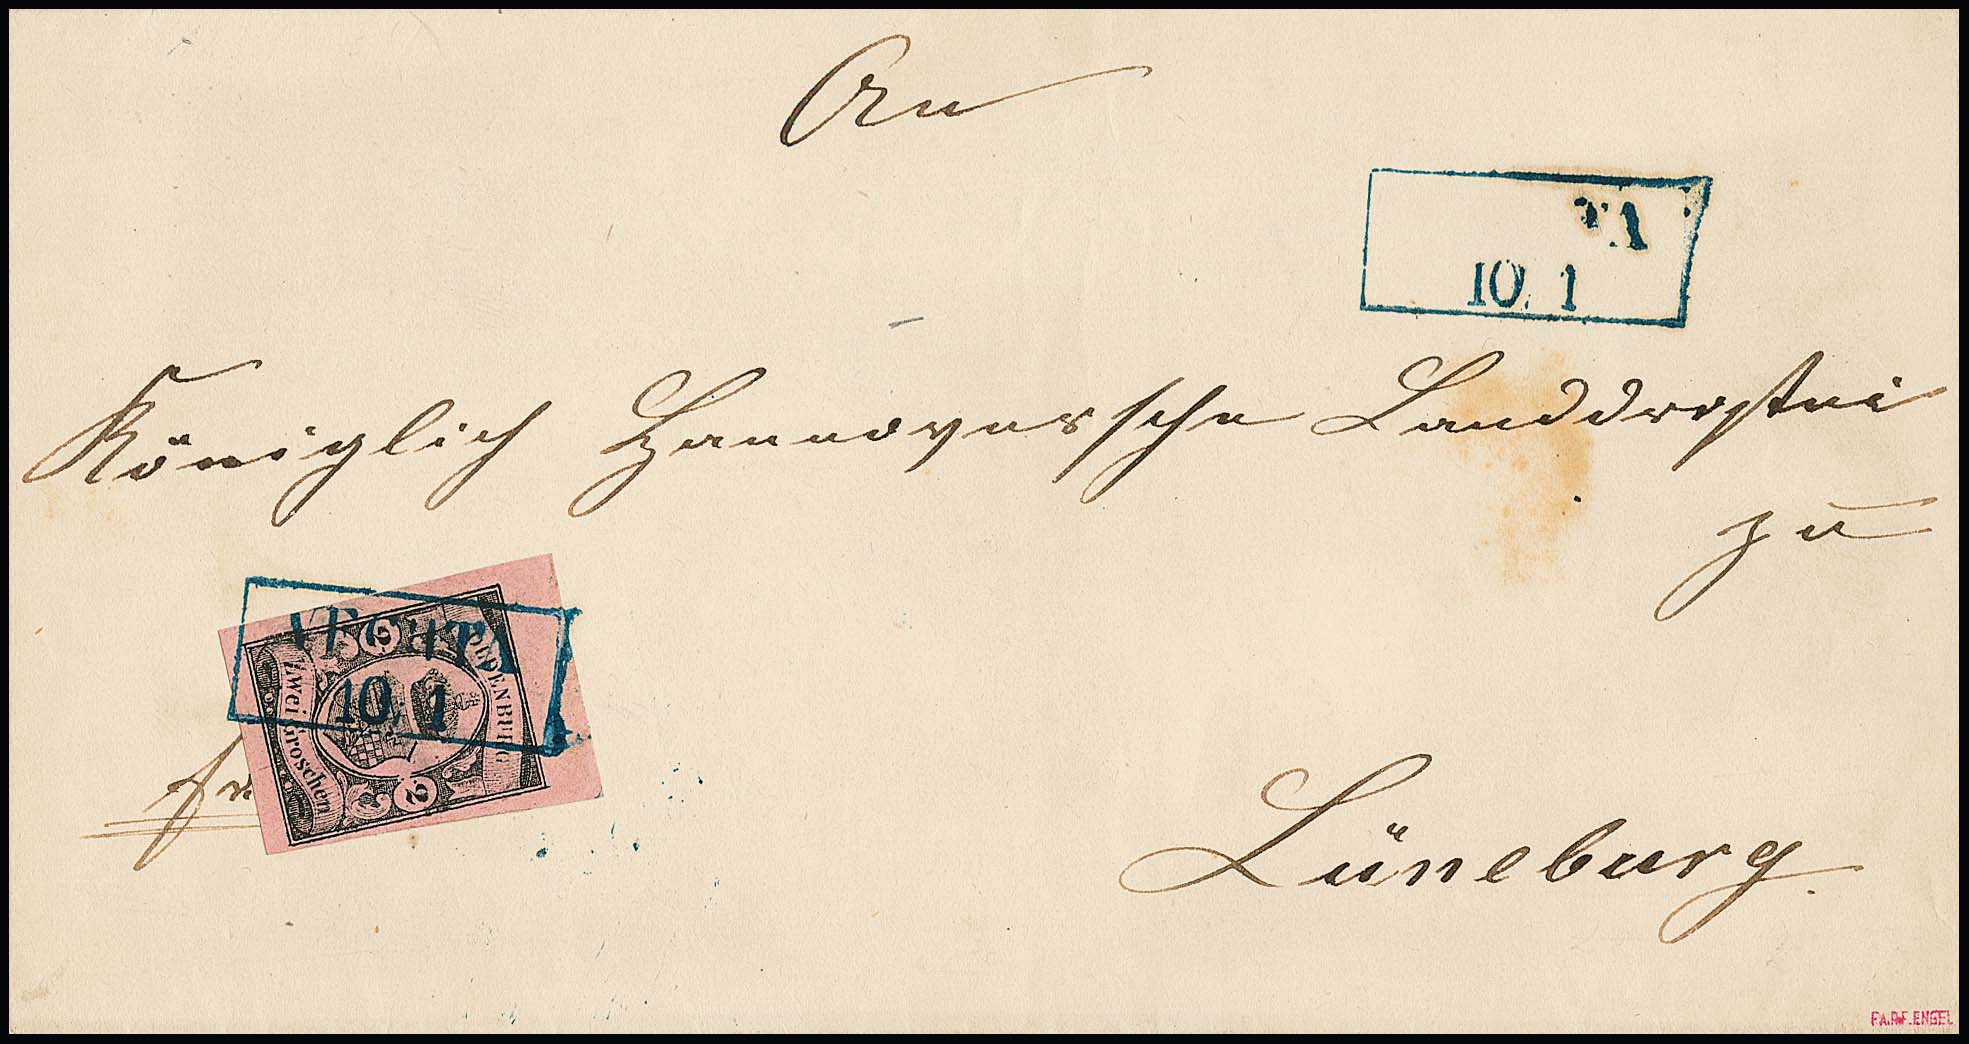 An
TA
10. 1
Königlich Hannoversche Landdrostei
zu
VECHTA
10. 1
OLDENBURG
2
Zwei Groschen
2
fr.
Lüneburg.
FA.R.F.ENGEL